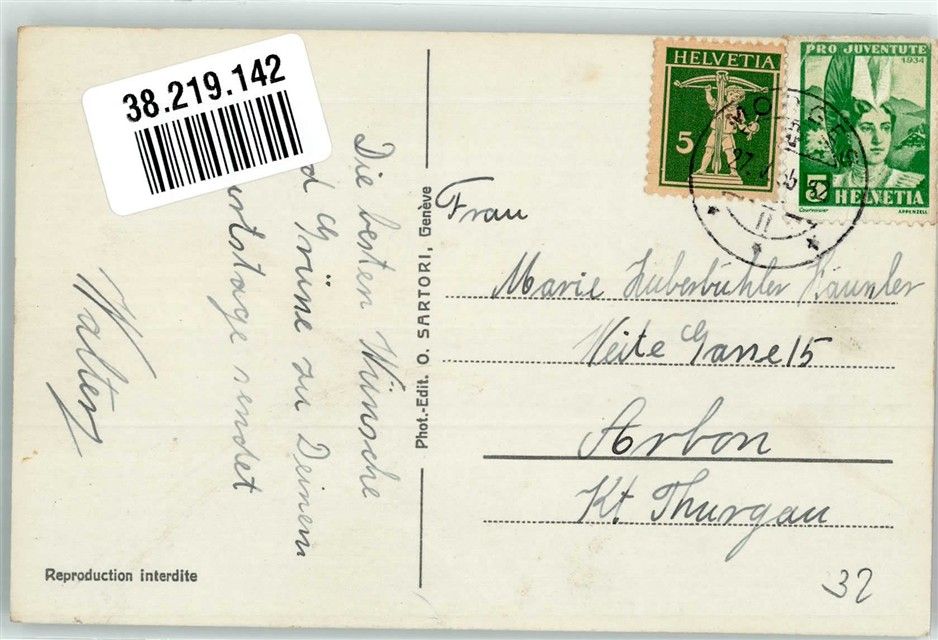 38.219.142
HELVETIA
5
PRO JUVENTUTE
1934
5
HELVETIA
Courvoisier
APPENZELL
Die besten Wünsche
d Grüne zu Deinem
urtstage sendet
Walter
Phot.-Edit. O. SARTORI, Genève
Frau
Marie Huberbühler
Weite Gasse 15
Arbon
Kt Thurgau
Reproduction interdite
32